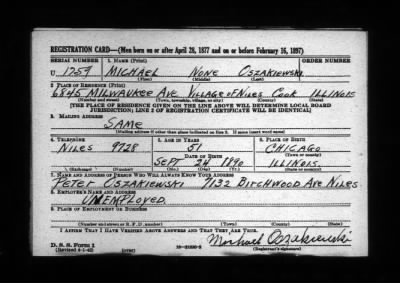 REGISTRATION CARD—(Men born on or after April 28, 1877 and on or before February 16, 1897)
SERIAL NUMBER 1. NAME (Print) ORDER NUMBER
U 1759 MICHAEL NONE OSZAKIEWSKI
(First) (Middle) (Last)
2. PLACE OF RESIDENCE (Print)
6845 MILWAUKEE AVE VILLAGE OF NILES COOK ILLINOIS
(Number and street) (Town, township, village, or city) (County) (State)
[THE PLACE OF RESIDENCE GIVEN ON THE LINE ABOVE WILL DETERMINE LOCAL BOARD
JURISDICTION; LINE 2 OF REGISTRATION CERTIFICATE WILL BE IDENTICAL]
3. MAILING ADDRESS
SAME
[Mailing address if other than place indicated on line 2. If same insert word same]
4. TELEPHONE 5. AGE IN YEARS 6. PLACE OF BIRTH
NILES 9728 51 CHICAGO
DATE OF BIRTH (Town or county)
SEPT 24 1890 ILLINOIS.
(Exchange) (Number) (Mo.) (Day) (Yr.) (State or country)
7. NAME AND ADDRESS OF PERSON WHO WILL ALWAYS KNOW YOUR ADDRESS
PETER OSZAKIEWSKI 7132 BIRCHWOOD AVE NILES
8. EMPLOYER'S NAME AND ADDRESS
UNEMPLOYED.
9. PLACE OF EMPLOYMENT OR BUSINESS
(Number and street or R. F. D. number) (Town) (County) (State)
I AFFIRM THAT I HAVE VERIFIED ABOVE ANSWERS AND THAT THEY ARE TRUE.
D. S. S. Form 1
(Revised 4-1-42) (Registrant's signature)